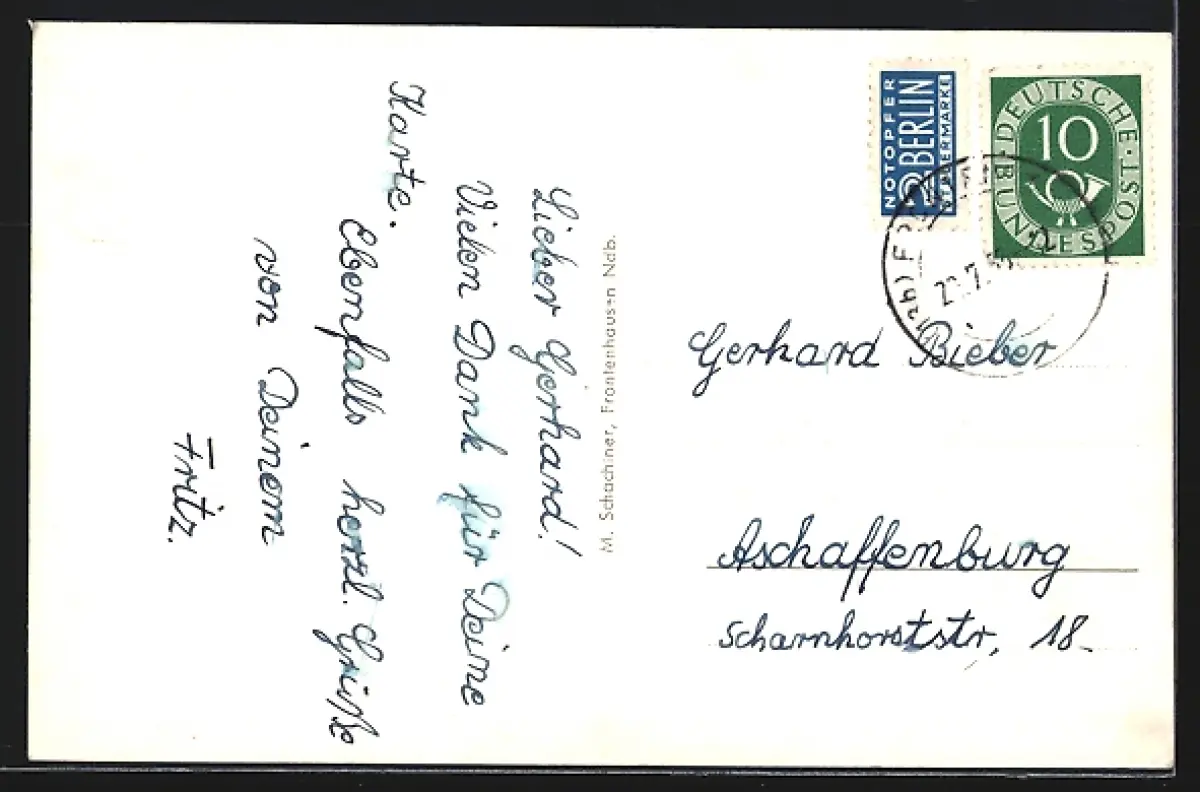 Lieber Gerhard!
Vielen Dank für Deine
Karte.
Ebenfalls herzl. Grüße
von Deinem
Fritz.
M. Schachiner, Frontenhausen Ndb.
NOTOPFER
2 BERLIN
STEUERMARKE
DEUTSCHE BUNDESPOST
10
Gerhard Bieber
Aschaffenburg
Scharnhorststr, 18.